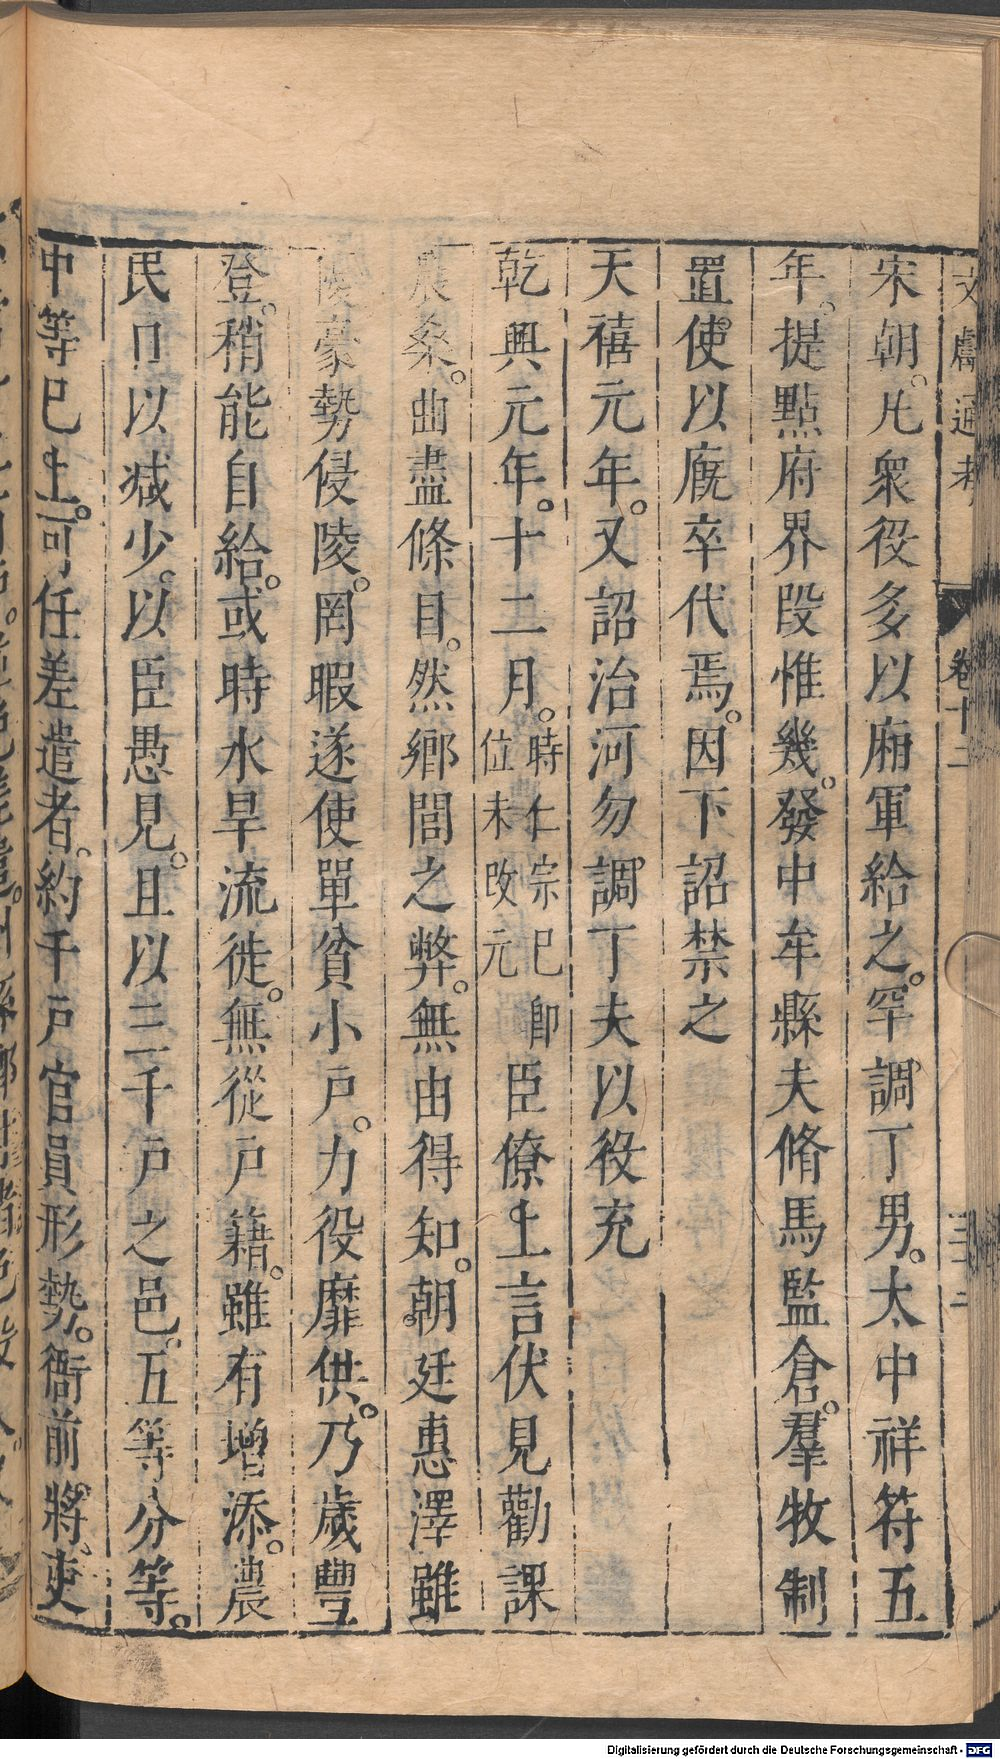 文獻通考 卷十二 三十二
宋朝。凡衆役多以廂軍給之。罕調丁男。太中祥符五
年。提點府界段惟幾。發中牟縣夫脩馬監倉。羣牧制
置使以廐卒代焉。因下詔禁之
天禧元年。又詔治河勿調丁夫以役充
乾興元年。十二月。時仁宗已即位未改元臣僚上言伏見勸課
農桑。曲盡條目。然鄉閭之弊。無由得知。朝廷惠澤雖
優豪勢侵陵。罔暇遂使單貧小戶。力役靡供。乃歲豐
登。稍能自給。或時水旱流徙。無從戶籍。雖有增添。農
民以減少。以臣愚見。且以三千戶之邑。五等分等。
中等已上。可任差遣者。約千戶官員形勢。衙前將吏
Digitalisierung gefördert durch die Deutsche Forschungsgemeinschaft - DFG